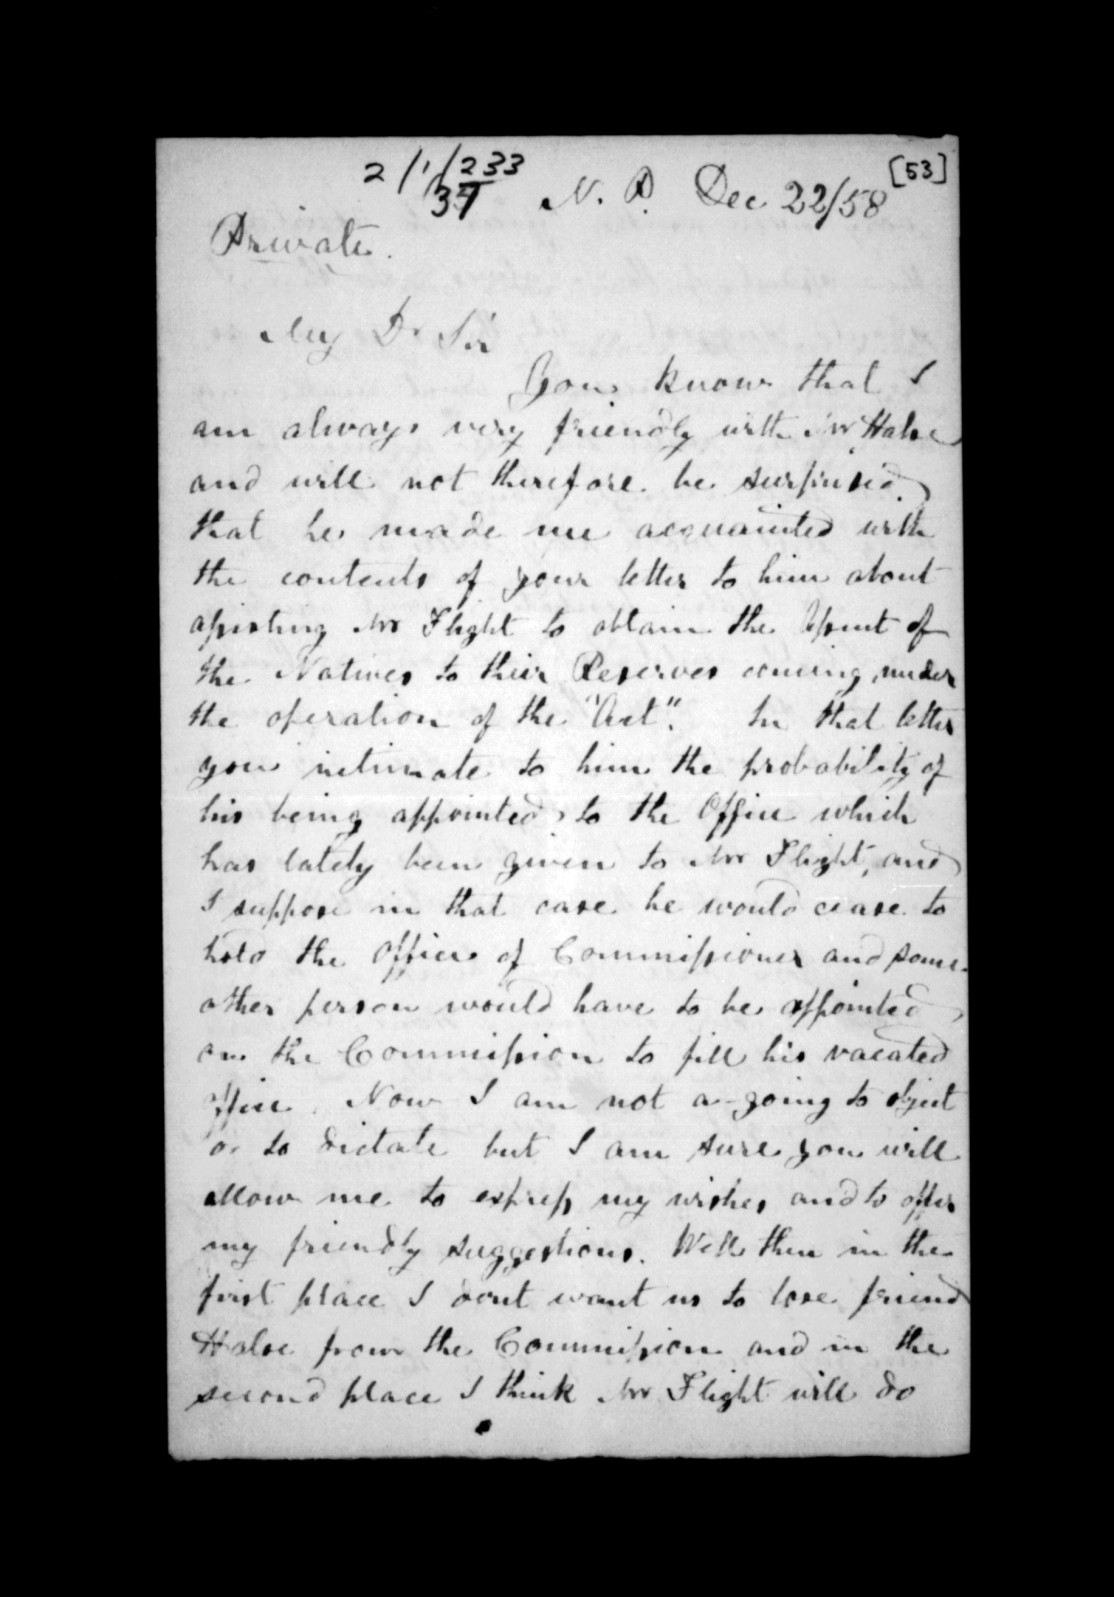 2/1/233
37
[53]
N. P. Dec 22/58
Private.
My Dr Sir
You know that I
am always very friendly with Mr Halse
and will not therefore be surprised
that he made me acquainted with
the contents of your letter to him about
assisting Mr Flight to obtain the Assent of
the Natives to their Reserves coming under
the operation of the "Act". In that letter
you intimate to him the probability of
his being appointed to the Office which
has lately been given to Mr Flight, and
I suppose in that case he would cease to
hold the Office of Commissioner and some
other person would have to be appointed
on the Commission to fill his vacated
office. Now I am not a-going to object
or to dictate but I am sure you will
allow me to express my wishes and to offer
my friendly suggestions. Well then in the
first place I dont want us to lose friend
Halse from the Commission and in the
second place I think Mr Flight will do